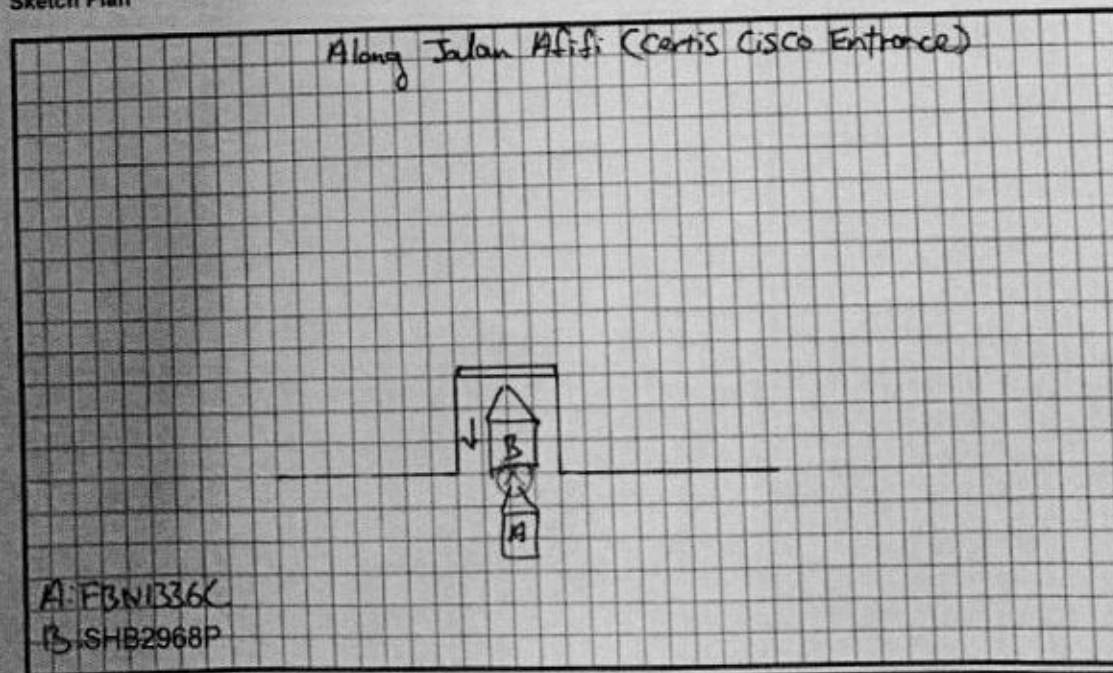 Sketch Plan
Along Jalan Afifi (Certis Cisco Entrance)
B
A
A: FBN1336C
B: SHB2968P